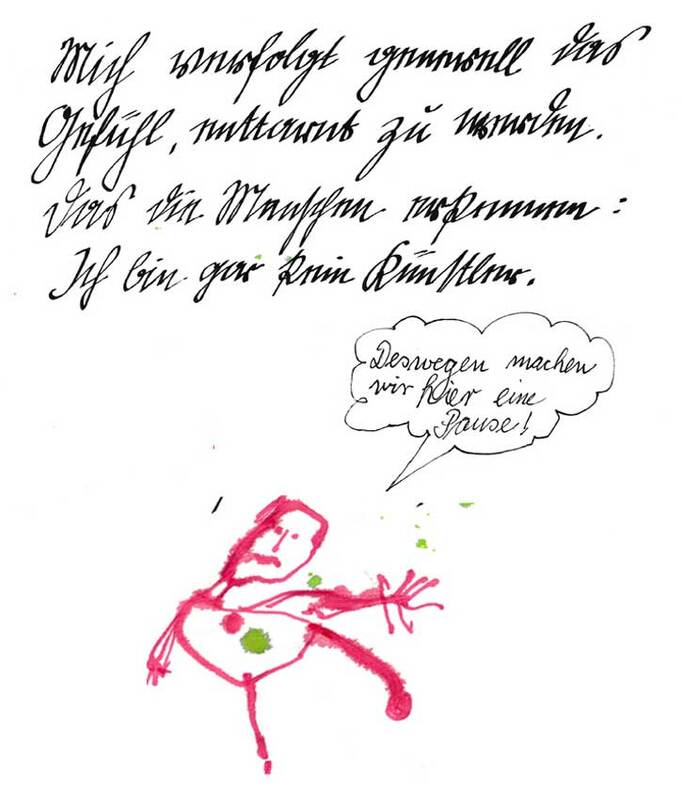 Mich verfolgt generell das
Gefühl, enttarnt zu werden.
Das die Menschen erkennen:
Ich bin gar kein Künstler.
Deswegen machen
wir hier eine
Pause!